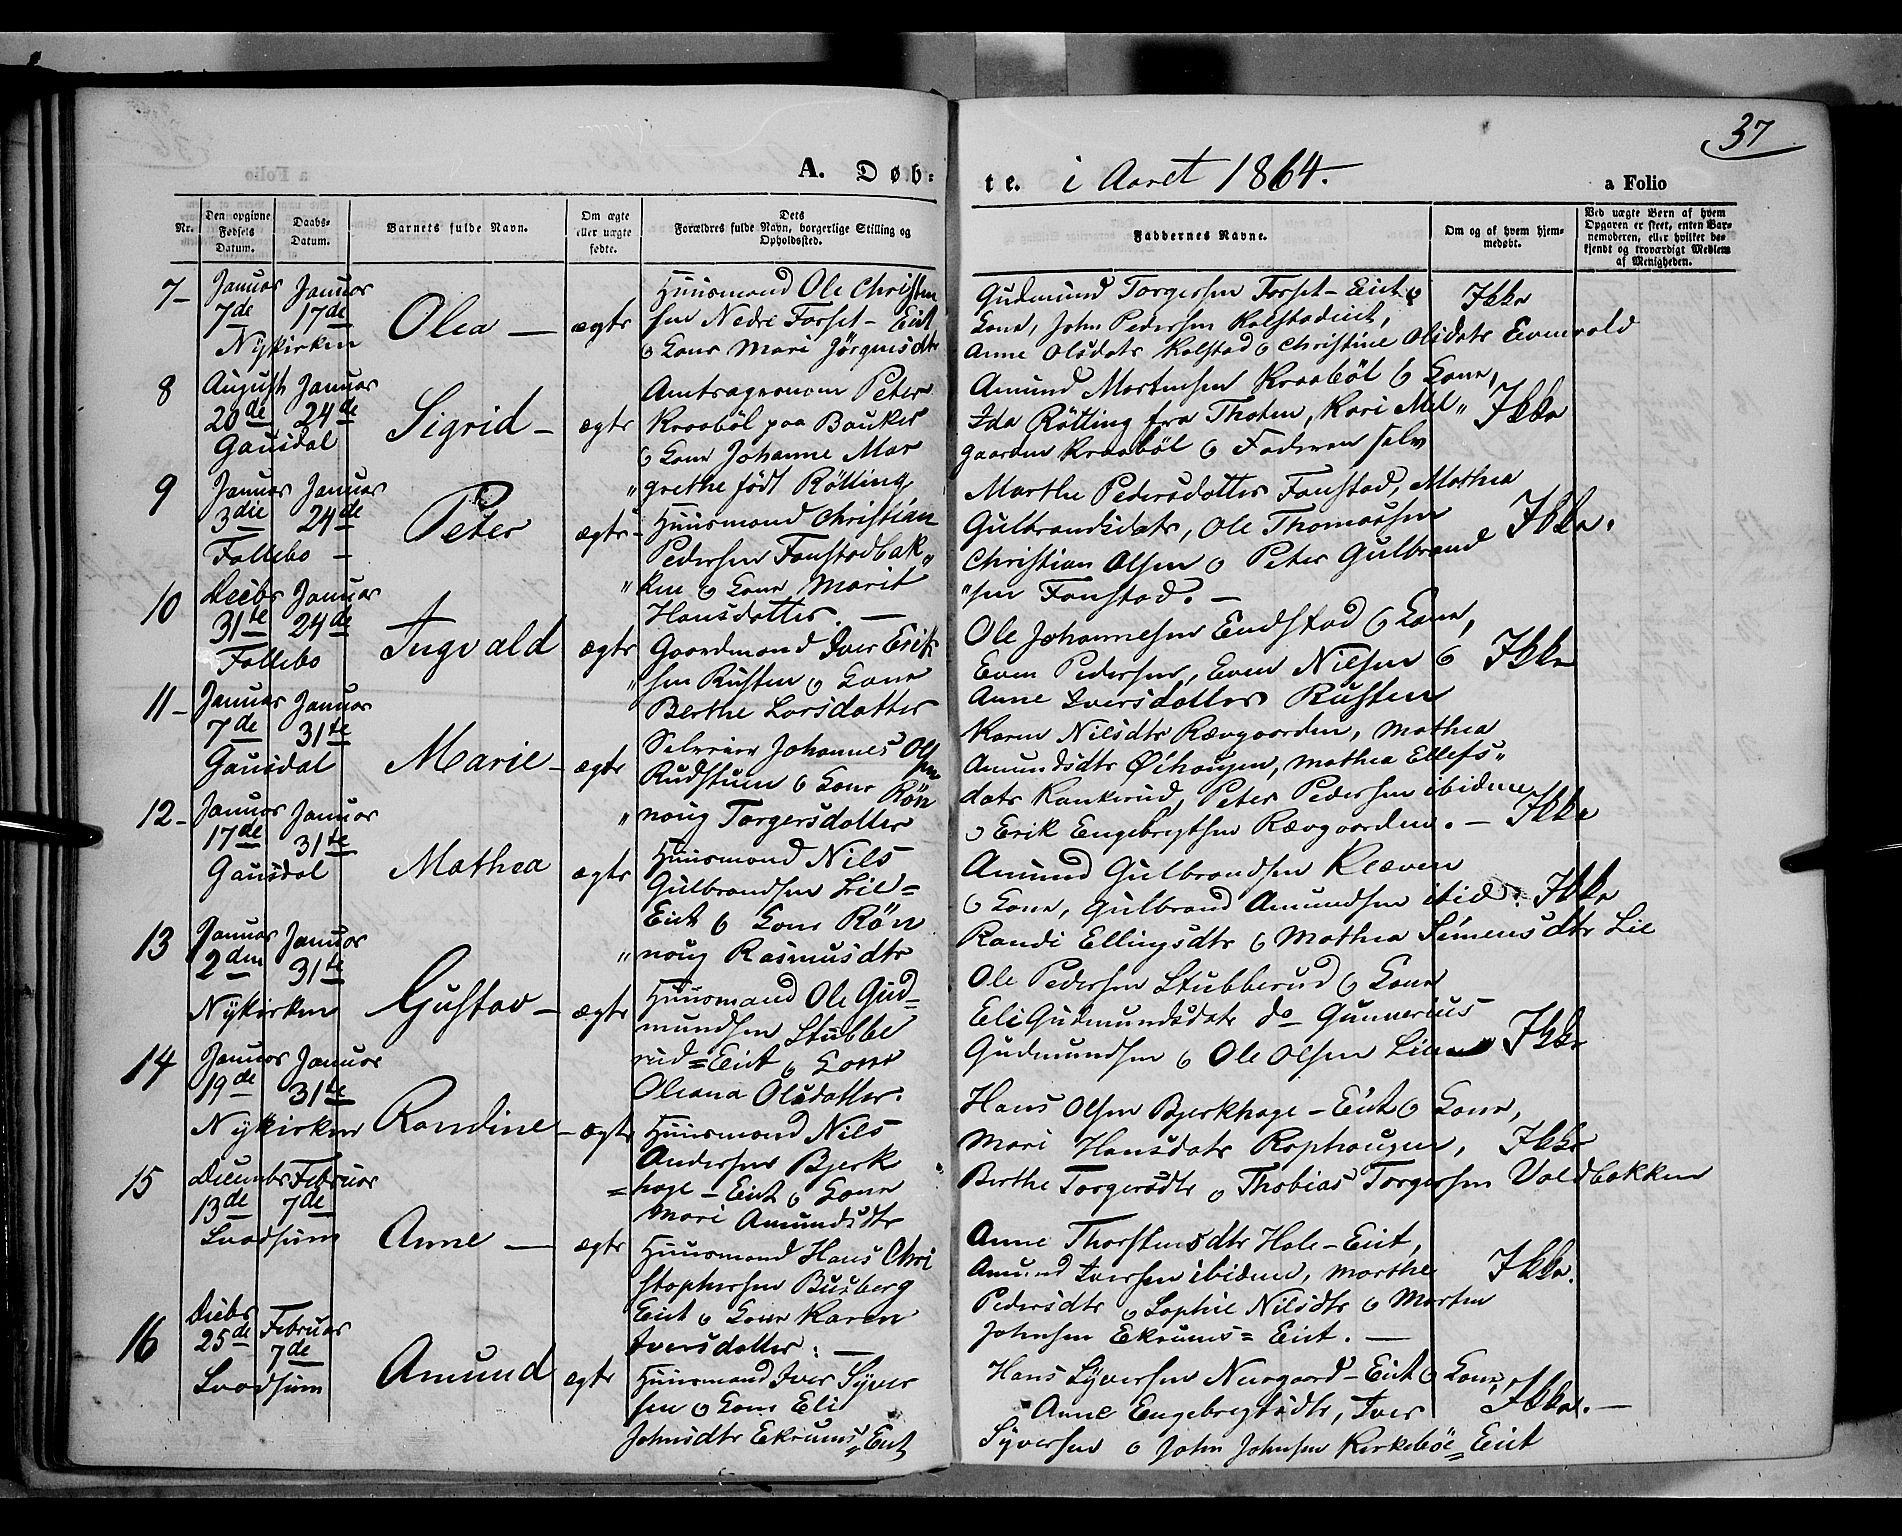 37
A. Døb-
te. i Aaret 1864.
a Folio
Nr.
Den opgivne
Fødsels
Datum.
Daabs-
Datum.
Barnets fulde Navn.
Om ægte
eller uægte
fødte.
Dets
Forældres fulde Navn, borgerlige Stilling og
Opholdssted.
Faddernes Navne.
Om og af hvem hjem-
medøbt.
Ved uægte Børn af hvem
Opgaven er skeet, enten Bar-
nemoderen, eller hvilket be-
kjendt og troværdigt Medlem
af Menigheden.
7- Januar Januar
7de 17de
Nykirken
Olea — ægte
Huusmand Ole Christen
sen Nedre Forset- Eiet
o Kone Mari Jørgensdtr
Gudmund Torgersen Forset- Eiet o
Kone, John Pedersen Kalstadeiet,
Anne Olsdatr Kalstad o Christine Olsdatr Evenvold
Ikke
8 August Januar
20de 24de
Gausdal
Sigrid - ægte
Amtsagronom Peter
Kraabøl paa Bauker
o Kone Johanne Mar
„grethe født Røtting
Amund Mortensen Kraabøl o Kone,
Ida Røtting fra Thoten, Kari Mel„
gaarden Kraabøl o Faderen selv
Ikke
9 Januar Januar
3die 24de
Follebo -
Peter ægte-
Huusmand Christian
Pedersen Fonstadbak„
„ken o Kone Marit
Hansdatter. —
Marthe Pedersdatter Fonstad, Mathea
Gulbrandsdatr, Ole Thomassen
Christian Olsen o Peter Gulbrand
„sen Fonstad. —
Ikke.
10 Decbr Januar
31te 24de
Follebo
Ingvald ægte
Gaardmand Iver Erik
„sen Rusten o Kone
Berthe Larsdatter
Ole Johannesen Endstad o Kone,
Even Pedersen, Even Nilsen o
Anne Iversdatter Rusten
Ikke
11- Januar Januar
7de 31te
Gausdal
Marie - ægte
Selveier Johannes Olsen
Rudstuen o Kone Røn
„noug Torgersdatter
Karen Nilsdtr Rævgaarden, Mathea
Amundsdtr Øihougen, Mathea Ellefs„
datr Kankerud, Peter Pedersen ibidem
o Erik Engebregtsen Rævgaarden. —
Ikke
12- Januar Januar
17de 31te
Gausdal
Mathea ægte
Huusmand Nils
Gulbrandsen Lie=
Eiet o Kone Røn
„noug Rasmusdtr
Amund Gulbrandsen Kleven
o Kone, Gulbrand Amundsen ibid:
Randi Ellingsdtr o Mathea Simensdtr Lie
Ikke
13 Januar Januar
2den 31te
Nykirken
Gustav - ægte
Huusmand Ole Gud=
mundsen Stubbe
rud=Eiet o Kone
Oleana Olsdatter.
Ole Pedersen Stubberud o Kone
Eli Gudmundsdatr do Gunnerius
Gudmundsen o Ole Olsen Lien
Ikke
14 Januar Januar
19de 31te
Nykirken
Randine - ægte
Huusmand Nils
Andersen Bjerk
=hage - Eiet o Kone
Mari Amundsdtr
Hans Olsen Bjerkhage - Eiet o Kone,
Mari Hansdatr Rophougen,
Berthe Torgersdtr o Thobias Torgersen Voldbakken
Ikke
15 Decembr Februar
13de 7de
Svadsum
Anne — ægte
Huusmand Hans Chri
stophersen Busberg
Eiet o Kone Karen
Iversdatter: —
Anne Thorstensdtr Hole-Eiet,
Amund Iversen ibidem, Marthe
Pedersdtr o Sophie Nilsdtr o Morten
Johnsen Ekrums=Eiet. —
Ikke.
16 Decbr Februar
25de 7de
Svadsum
Amund ægte
Huusmand Iver Syver
sen o Kone Eli
Johnsdtr Ekrums„Eiet
Hans Syversen Nusgaard-Eiet o Kone,
Anne Engebregtsdtr, Iver
Syversen o John Johnsen Kirkebøe=Eiet
Ikke. —